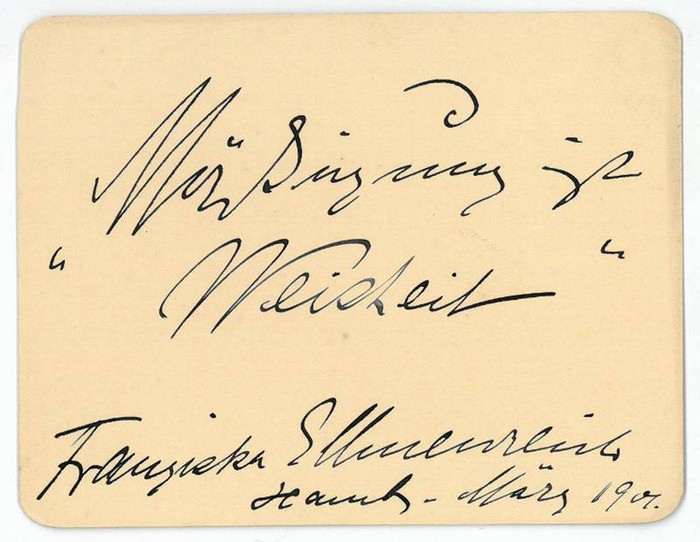 Mäßigung ist
"Weisheit"
Franziska Ellmenreich
Hamb. - März 1901.